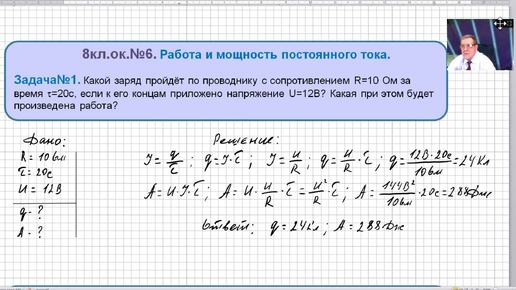 8кл.ок.№6. Работа и мощность постоянного тока.
Задача№1. Какой заряд пройдёт по проводнику с сопротивлением R=10 Ом за
время τ=20с, если к его концам приложено напряжение U=12В? Какая при этом будет
произведена работа?
Дано:
R = 10 Ом
τ = 20с
U = 12В
q - ?
A - ?
Решение:
I = q/τ ; q = I·τ ; I = U/R ; q = U/R · τ ; q = 12В·20с/10 Ом = 24 Кл
A = U·I·τ ; A = U · U/R · τ = U²/R · τ ; A = 144В²/10 Ом · 20с = 288 Дж
Ответ: q = 24 Кл ; A = 288 Дж